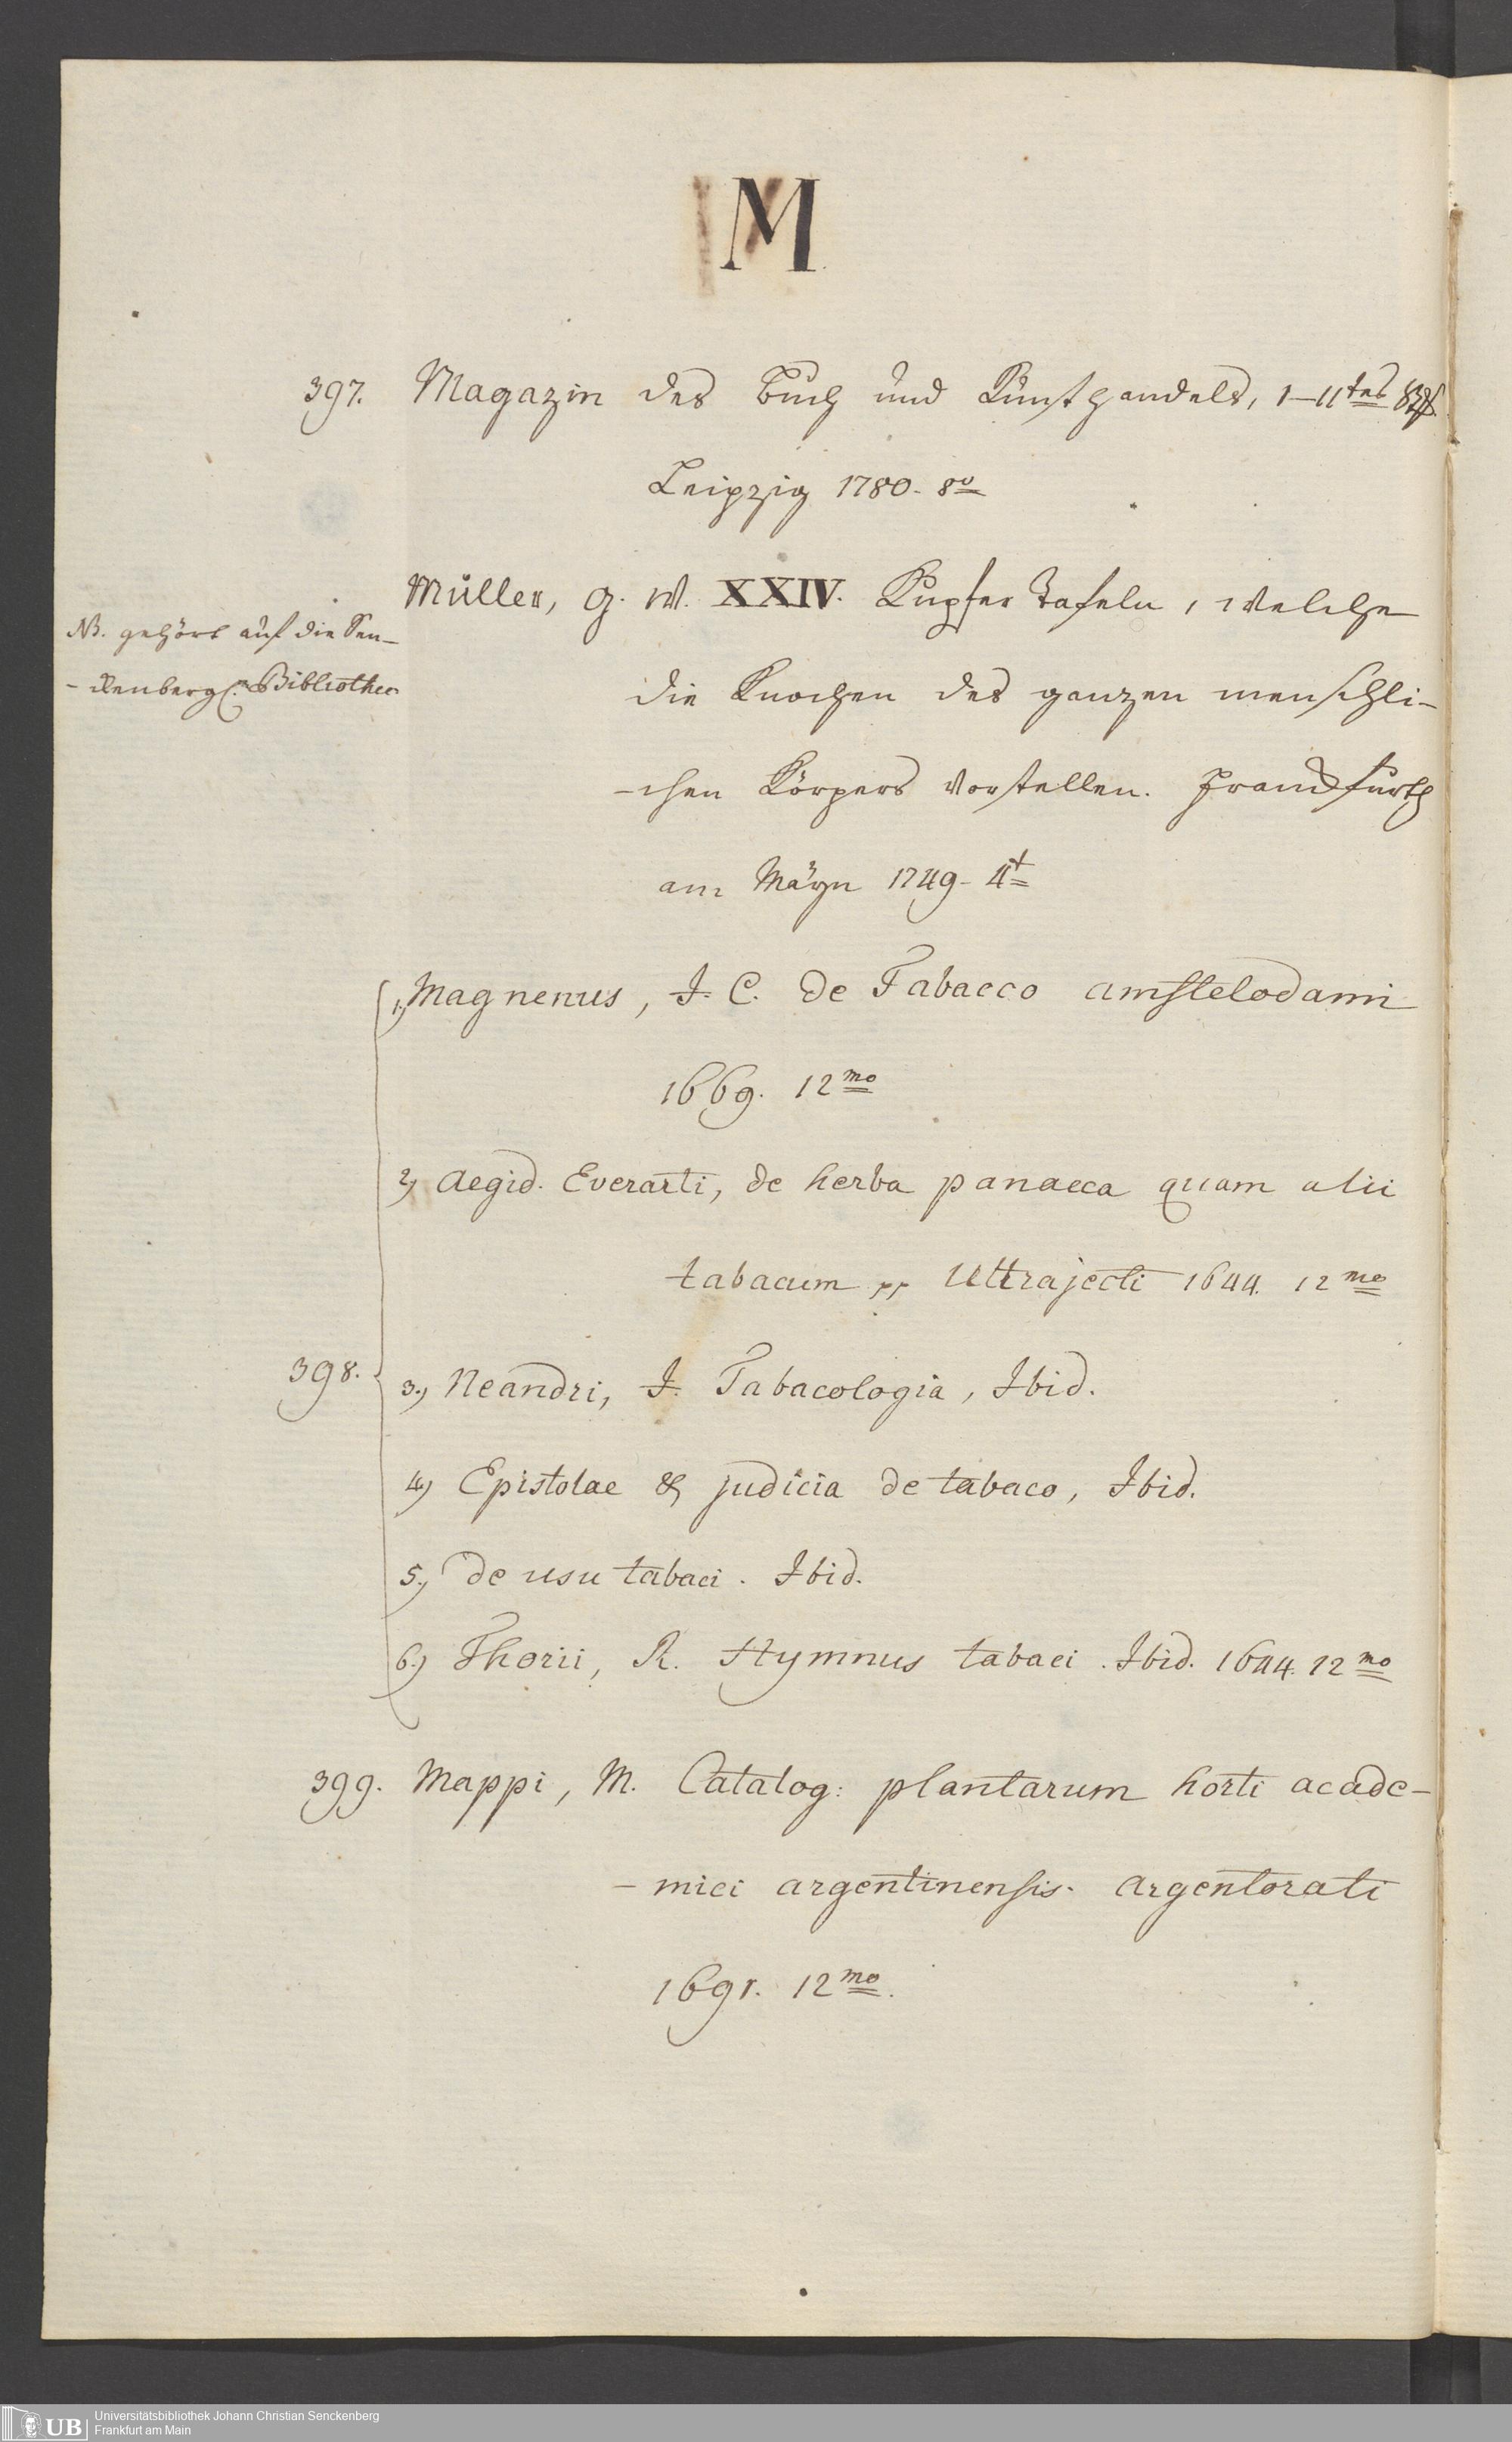 M
397. Magazin des Buch und Kunsthandels, 1–11tes
Leipzig 1780. 8vo
Müller, G. W. XXIV. Kupfer Tafeln, welche
NB. gehört auf die Sen-
-ckenberg. Bibliothec
die Knochen des ganzen menschli-
-chen Körpers vorstellen. Franckfurth
am Mäyn 1749. 4t
1.) Magnenus, J. C. De Tabacco Amstelodami
1669. 12mo
2.) Aegid. Everarti, de herba panaeca quam alii
tabacum pp Ultrajecti 1644. 12mo
398.
3.) Neandri, J. Tabacologia, Ibid.
4.) Epistolae & judicia de tabaco, Ibid.
5.) De usu tabaci. Ibid.
6.) Thorii, R. Hymnus tabaci. Ibid. 1644. 12mo
399. Mappi, M. Catalog: plantarum horti acade-
-mici argentinensis. Argentorati
1691. 12mo.
UB Universitätsbibliothek Johann Christian Senckenberg
Frankfurt am Main